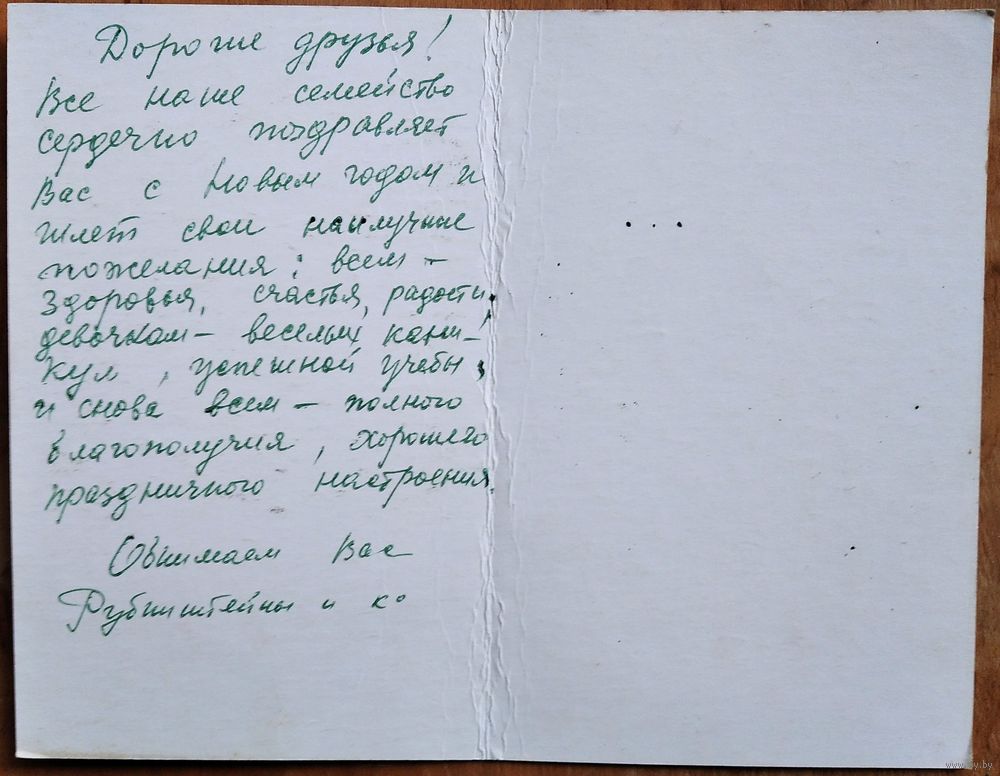 Дорогие друзья!
Все наше семейство
сердечно поздравляет
Вас с Новым годом и
шлет свои наилучшие
пожелания: всем –
здоровья, счастья, радости,
девочкам – веселых кани-
кул, успешной учебы,
и снова всем – полного
благополучия, хорошего
праздничного настроения.
Обнимаем Вас
Рубинштейны и к°
...